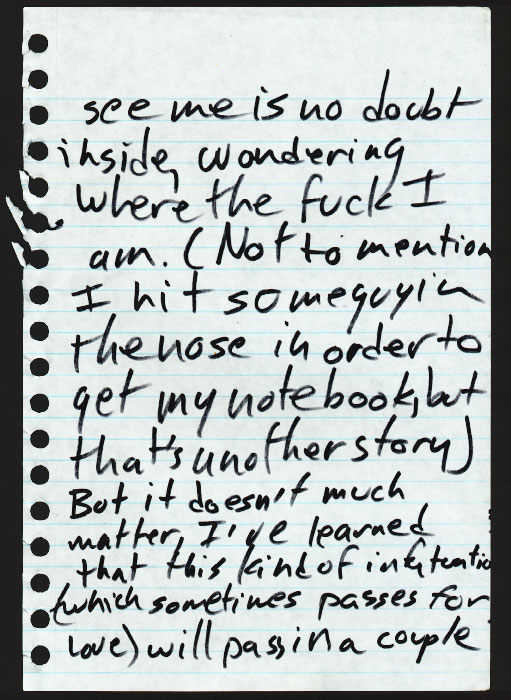 see me is no doubt
inside, wondering
where the fuck I
am. (Not to mention
I hit some guy in
the nose in order to
get my notebook, but
that's another story)
But it doesn't much
matter, I've learned
that this kind of
(which sometimes passes for
love) will pass in a couple